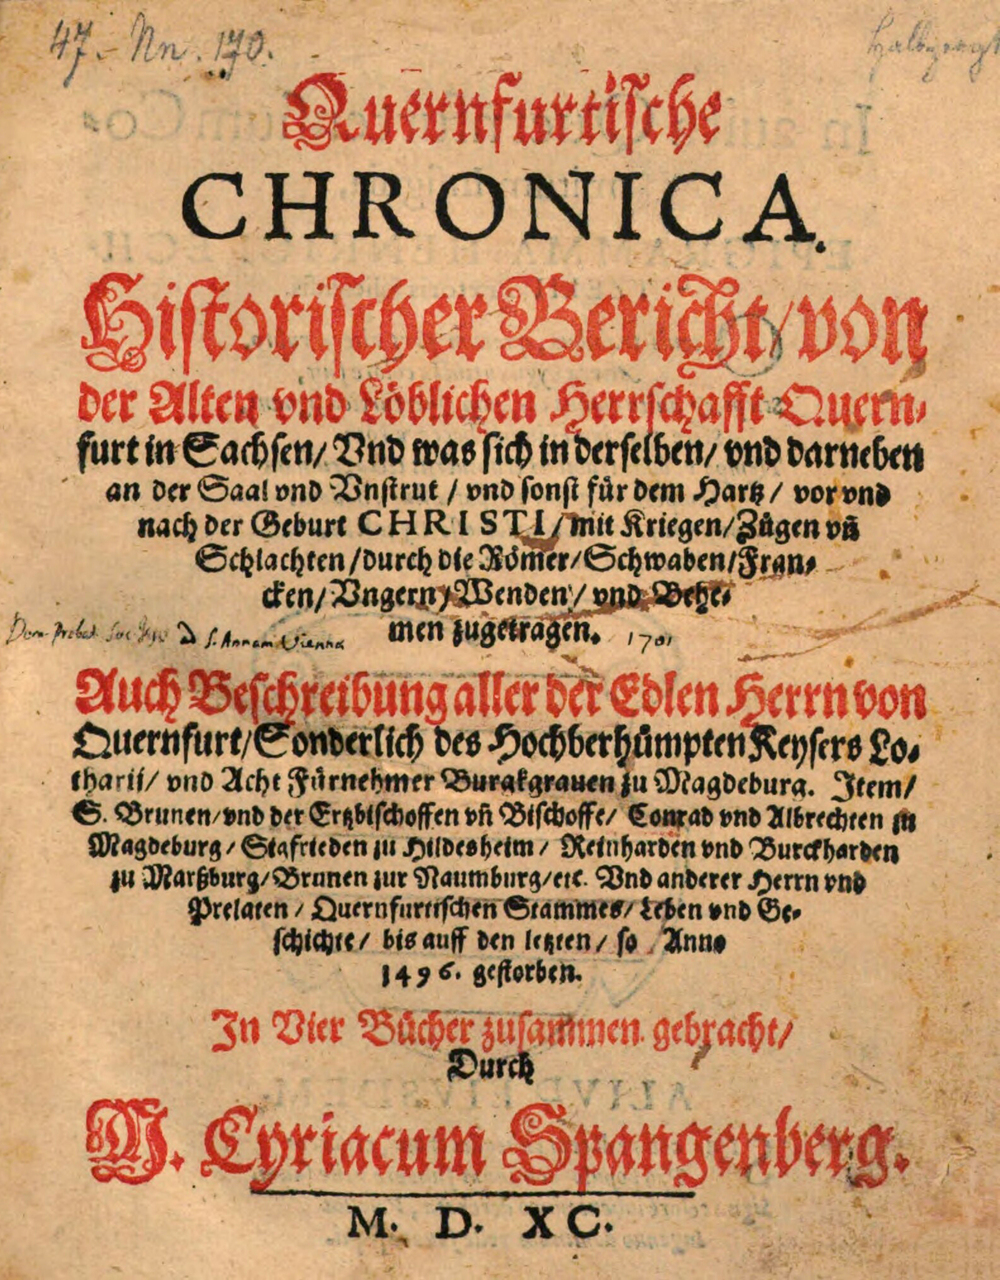 47. Nn. 170.
Quernfurtische
CHRONICA.
Historischer Bericht/ von
der Alten vnd Löblichen Herrschafft Quern-
furt in Sachsen/ Vnd was sich in derselben/ vnd darneben
an der Saal vnd Vnstrut / vnd sonst für dem Hartz / vor vnd
nach der Geburt CHRISTI/ mit Kriegen/ Zügen vñ
Schlachten/ durch die Römer/ Schwaben/ Fran-
cken/ Vngern/ Wenden/ vnd Behe-
men zugetragen. 1701
S. Annam Vienna
Auch Beschreibung aller der Edlen Herrn von
Quernfurt/ Sonderlich des Hochberhümpten Keysers Lo-
tharii/ vnd Acht Fürnehmer Burgkgrauen zu Magdeburg. Item/
S. Brunen/ vnd der Ertzbischoffen vñ Bischoffe/ Conrad vnd Albrechten zu
Magdeburg/ Siafrieden zu Hildesheim/ Reinharden vnd Burckharden
zu Marßburg/ Brunen zur Naumburg/ etc. Vnd anderer Herrn vnd
Prelaten / Quernfurtischen Stammes/ Leben vnd Ge-
schichte/ bis auff den letzten/ so Anno
1496. gestorben.
In Vier Bücher zusammen gebracht/
Durch
M. Cyriacum Spangenberg.
M. D. XC.